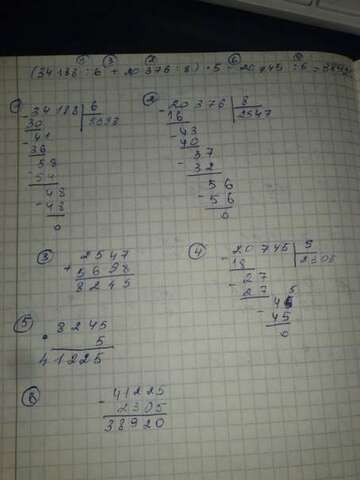 ① ③ ② ⑥ ④
(34 188 : 6 + 20 376 : 8) · 5 - 20 745 : 9 = 38920
① - 34188 | 6
30 5698
- 41
36
58
- 54
48
- 48
0
② - 20 376 | 8
16 2547
- 43
40
- 37
32
56
- 56
0
③ 2547
+ 5698
8245
④ - 20 745
18 2305
- 27
27
45
- 45
0
⑤ 8245
· 5
41225
⑥ - 41225
2305
38920